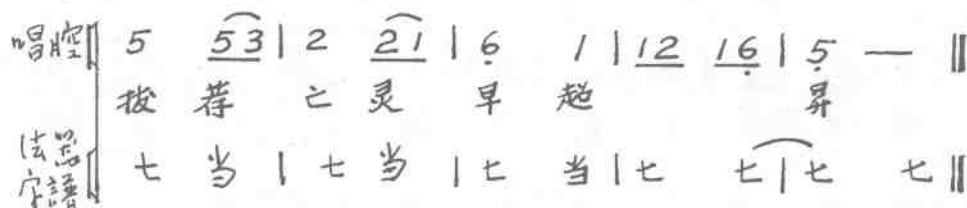 唱腔 5 53 | 2 21 | 6̣ 1 | 12 16̣ | 5̣ — ‖
拔荐亡灵早超昇
法器字谱 七 当 | 七 当 | 七 当 | 七 七 | 七 七 ‖